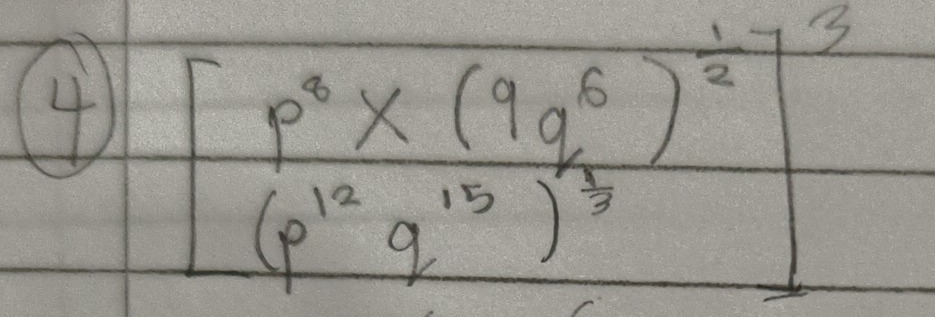 ④ [ p⁸ × (9q⁶)^½
(p¹² q¹⁵)^⅓ ]³